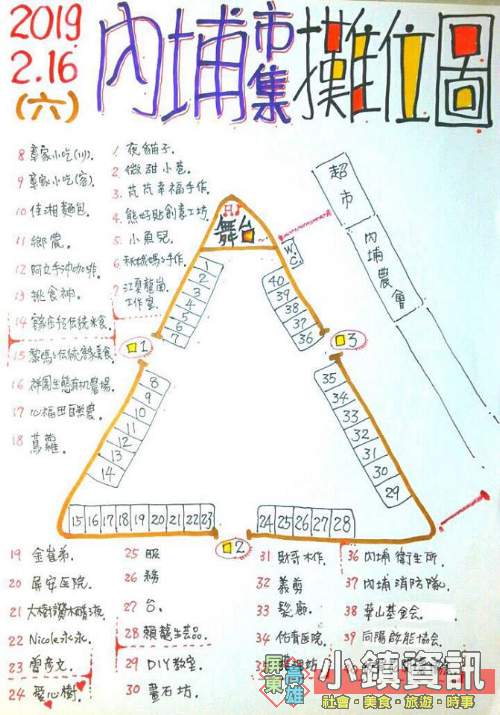 2019
2.16
(六)
內埔市集攤位圖
1 夜貓子
2 微甜小巷
3 芃芃幸福手作
4 熊好貼創意工坊
5 小魚兒
6 秋桃媽ㄟ手作
7 江夏龍崗
工作室
8 辜家小吃(川)
9 辜家小吃(客)
10 佳湘麵包
11 鄉農
12 阿立手沖咖啡
13 挑食神
16 祥園生態有機農場
17 心福田自然農
18 蔦蘿
舞台
WC
超市
內埔農會
1
2
3
4
5
6
7
8
9
10
11
12
13
14
15 16 17 18 19 20 21 22 23
24 25 26 27 28
29
30
31
32
33
34
35
36
37
38
39
40
1
2
3
19 金雀弟
20 屏安医院
21 大樹讚木醋液
22 Nicole永永
23 曾彥文
24 愛心樹
25 服
26 務
27 台
28 賴龍生芸品
29 DIY教室
30 畫石坊
31 財哥木作
32 義剪
33 髮廊
34 佑青医院
36 內埔衛生所
37 內埔消防隊
38 華山基金会
39 向陽啟能協会
屏東 高雄
小鎮資訊
社會・美食・旅遊・時事